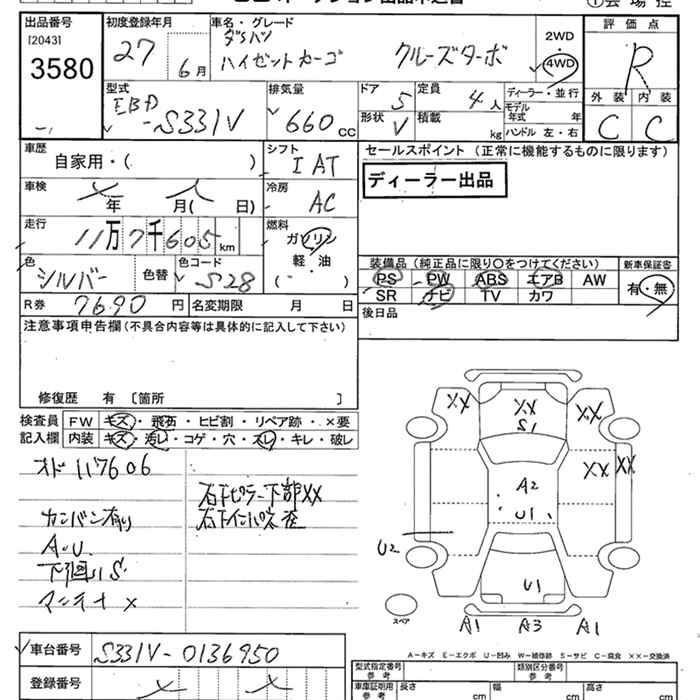 出品番号
[2043]
3580
初度登録年月
27
6月
車名・グレード
ダイハツ
ハイゼットカーゴ クルーズターボ
2WD
4WD
評価点
R
外装 内装
C C
型式
EBD
-S331V
排気量
660 CC
ドア
5
定員
4 人
形状
V
積載
kg
ディーラー・並行
モデル
年式 年
ハンドル 左・右
車歴
自家用・( )
シフト
I AT
車検
年 月( 日)
冷房
AC
走行
11万7千605km
燃料
ガソリン
軽・油
( )
色
シルバー
色替
色コード
S28
R券
7690円
名変期限 月 日
セールスポイント (正常に機能するものに限ります)
ディーラー出品
装備品 (純正品に限り○をつけてください)
PS PW ABS エアB AW
SR ナビ TV カワ
新車保証書
有・無
後日品
注意事項申告欄(不具合内容等は具体的に記入して下さい)
修復歴 有 [箇所 ]
検査員
記入欄
FW キズ・飛石・ヒビ割・リペア跡・×要
内装 キズ・汚レ・コゲ・穴・スレ・キレ・破レ
オド 117606
カンバン有り
A・U
下廻りS
アンテナ×
右下ピラー下部XX
右下インパネ歪
XX
XX
S1
XX
XX
XX
A2
U1
U2
U1
A1 A3 A1
スペア
A-キズ E-エクボ U-凹み W-補修跡 S-サビ C-腐食 ××-交換済
車台番号
S331V-0136950
登録番号
型式指定番号
参考
類別区分番号
参考
車庫証明用
参考
長さ cm
幅 cm
高さ cm